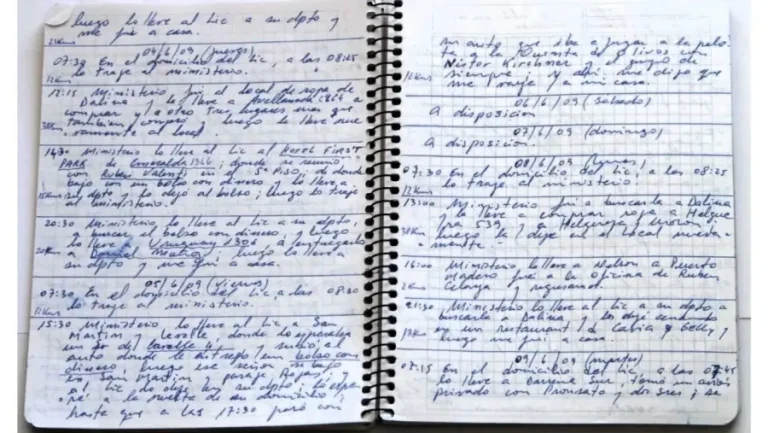 luego lo lleve al Lic a su dpto y
me fui a casa.
21Kms
04/6/09 (jueves)
07:30 En el domicilio del Lic, a las 08:25
lo traje al ministerio.
12Kms
Ministerio fui al local de ropa de
Dalina y la lleve a Avellaneda
comprar y a otro Tres lugares mas que
Tambien compro luego la lleve nue
vamente al local.
Ministerio lo lleve al Lic al Hotel First
PARK de Esmeralda donde se reunio
con Ruben Valenti en el 5º Piso; de donde
bajo con un bolso con dinero y lo lleve a
su dpto y lo dejo al bolso; luego lo traje
al ministerio.
15Kms
20:30 Ministerio lo lleve al Lic a su dpto,
a buscar el bolso con dinero, y luego
lo lleve a Uruguay 1306, a entregarlo
20Kms a Daniel luego lo lleve a
su dpto y me fui a casa.
05/6/09 (viernes)
07:30 En el domicilio del Lic, a las 08:20
lo traje al ministerio.
15:30 Ministerio lo lleve al Lic a San
Martin y Lavalle donde lo esperaba
un Sr de y subio al
auto donde le entrego un bolso con
dinero, luego ese señor se bajo
en San Martin y pasaje Rojas, y
al Lic lo deje en su dpto; lo espe
re a la vuelta de su domicilio,
hasta que a las 17:30 paró con
su auto que iba a jugar a la pelo
ta a la Quinta de Olivos con
Néstor Kirchner y el grupo de
siempre y ahi me dijo que
me vaya a mi casa.
06/6/09 (sabado)
A disposicion
07/6/09 (domingo)
A disposicion.
08/6/09 (lunes)
07:30 En el domicilio del Lic, a las 08:25
lo traje al ministerio
12Kms
13:00 Ministerio fui a buscarla a Dalina
y la lleve a comprar ropa a Helgue
ra 539 y Helguera y Moron
luego la deje en el local nueva-
mente.
16:00 Ministerio lo lleve a Nelson a Puerto
Madero fui a la oficina de Ruben
y regresamos.
21:30 Ministerio lo lleve al Lic a su dpto a
buscarla a Dalina y los deje cenando
en un restaurant de Cabia y Gelly y
luego me fui a casa.
09/6/09 (martes)
07:15 En el domicilio del Lic, a las 07:45
lo lleve a Darsena Sur, tomó un avion
privado con y dos Sres; se